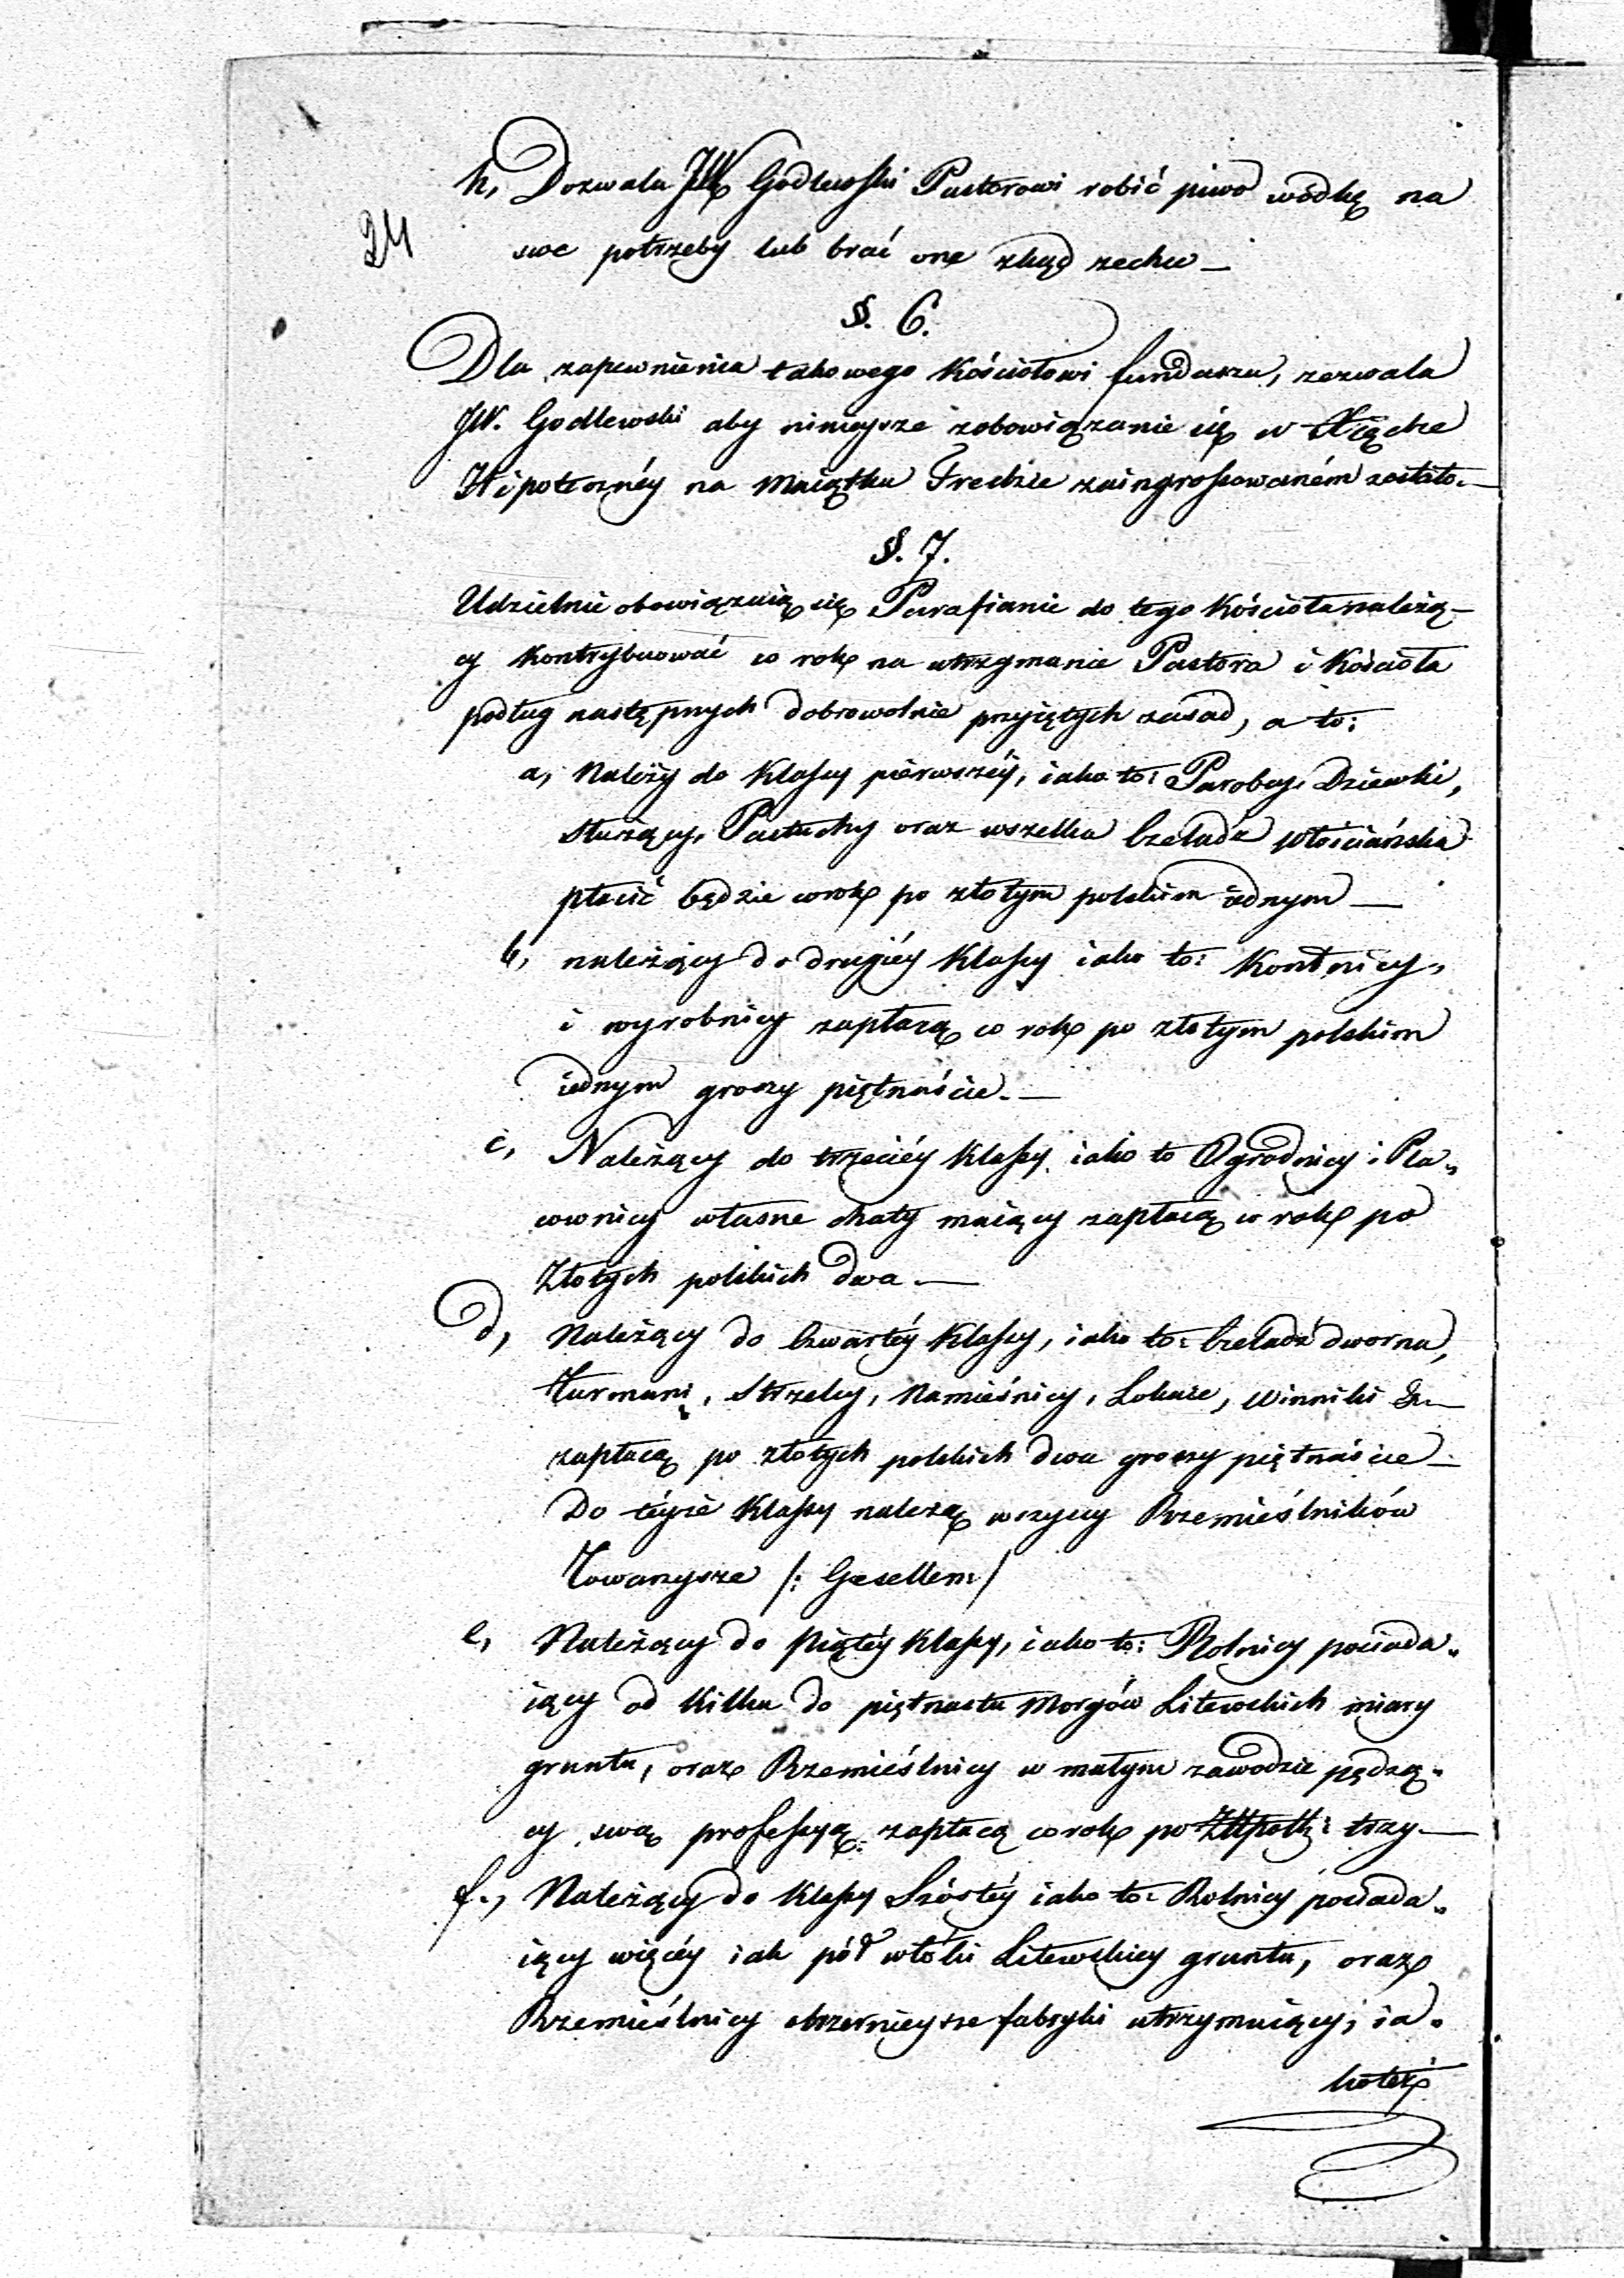 h, Dozwala JW Godlewski Pastorowi robić piwo wódkę na
24
swe potrzeby lub brać onę zkąd zechce —
§. 6.
Dla zapewnienia takowego Kościołowi funduszu, zezwala
JW. Godlewski aby ninieysze zobowiązanie się w Xiędze
Hipoteczney na Maiątku Fredzie zaingrossowaném zostało. —
§. 7.
Udzielnie obowiązuią się Parafianie do tego Kościoła należą-
cy Kontrybuować co rok na utrzymanie Pastora i Kościoła
podług następnych dobrowolnie przyiętych zasad, a to:
a, Należy do Klassy pierwszéy, iako to: Parobcy, Dziewki,
służący, Pastuchy oraz wszelka Czeladź Włościańska
płacić będzie corok po złotym polskim iednym —
b, należący do drugiéy Klassy iako to: Komornicy,
i wyrobnicy zapłacą co rok po złotym polskim
iednym groszy piętnaście. —
c, Należący do trzeciéy Klassy iako to Ogrodnicy i Pla-
cownicy własne chaty maiący zapłacą co rok po
Złotych polskich dwa. —
d, Należący do Czwartéy Klassy, iako to: Czeladź dworna,
Furmani, Strzelcy, Namieśnicy, Lokaie, Winniki &
zapłacą po złotych polskich dwa groszy piętnaście —
Do téyże Klassy należą wszyscy Rzemieślników
Towarzysze /: Gesellen :/
e, Należący do Piątéy Klassy, iako to: Rolnicy posiada-
iący od Kilku do piętnastu Morgów Litewskich miary
gruntu, oraz Rzemieślnicy w małym zawodzie pędzą-
cy swą professyą zapłacą corok po Złtpolk: trzy —
f., Należący do Klassy Szóstéy iako to: Rolnicy posiada-
iący więcéy iak pół włóki Litewskiey gruntu, oraz
Rzemieślnicy obszernieysze fabryki utrzymuiący, ia-
koteż